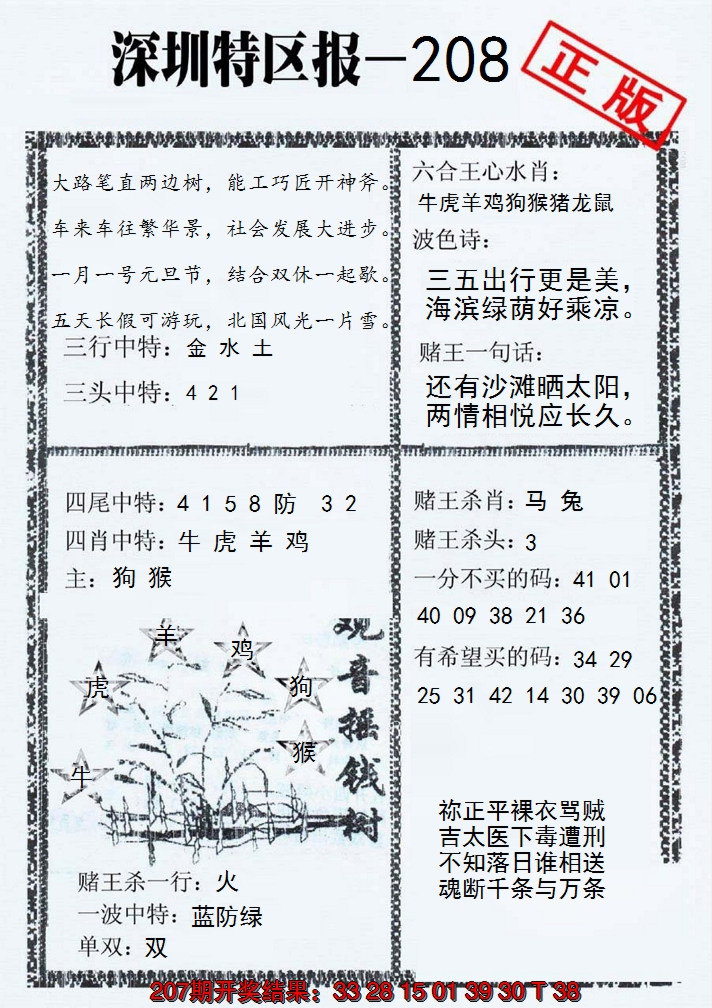 深圳特区报—208
正版
大路笔直两边树，能工巧匠开神斧。
车来车往繁华景，社会发展大进步。
一月一号元旦节，结合双休一起歇。
五天长假可游玩，北国风光一片雪。
三行中特：金 水 土
三头中特：4 2 1
六合王心水肖：
牛虎羊鸡狗猴猪龙鼠
波色诗：
三五出行更是美，
海滨绿荫好乘凉。
赌王一句话：
还有沙滩晒太阳，
两情相悦应长久。
四尾中特：4 1 5 8 防 3 2
四肖中特：牛 虎 羊 鸡
主：狗 猴
赌王杀肖：马 兔
赌王杀头：3
一分不买的码：41 01
40 09 38 21 36
有希望买的码：34 29
25 31 42 14 30 39 06
观音摇钱树
羊
鸡
虎
狗
猴
牛
赌王杀一行：火
一波中特：蓝防绿
单双：双
祢正平裸衣骂贼
吉太医下毒遭刑
不知落日谁相送
魂断千条与万条
207期开奖结果：33 28 15 01 39 30 T 38